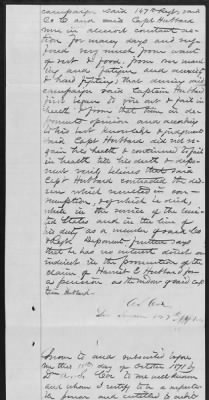 campaign said 147th Regt. said
Co C and said Capt Hubbard
was in almost constant ac-
tion for many days and suf-
fered very much from want
of rest & food, from over mar-
ches and fatigue and anxiety
& hard fighting, that during said
campaign said Captain Hubbard
first began to give out & fail in
health & from that time in de-
ponents opinion and according
to his best knowledge & judgment
said Capt Hubbard did not re-
gain his health & continued to fail
in health till his death & depo-
nent verily believes that said
Capt Hubbard contracted the dis-
ease which resulted in con-
sumption, of which he died,
while in the service of the Uni-
ted States and in the line of
his duty, as a member of said Co
& Regt. Deponent further says
that he has no interest direct or
indirect in the prosecution of the
claim of Harriet E Hubbard for
a pension as the widow of said Cap-
tain Hubbard.
Sworn to and subscribed before
me this 11th day of October 1871 by
Coe to me well known
and whom I certify to be a respecta-
ble person and entitled to credit